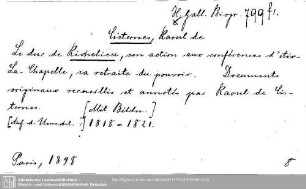 H. gall. Biogr. 799 f1.
Cisternes, Raoul de
Le duc de Richelieu, son action aux conférences d'Aix-
La-Chapelle, sa retraite du pouvoir. Documents
originaux recueillis et annotés par Raoul de Cis-
ternes. [Mit Bildn.]
[Auf d. Umschl.:] 1818-1821.
Paris, 1898 8